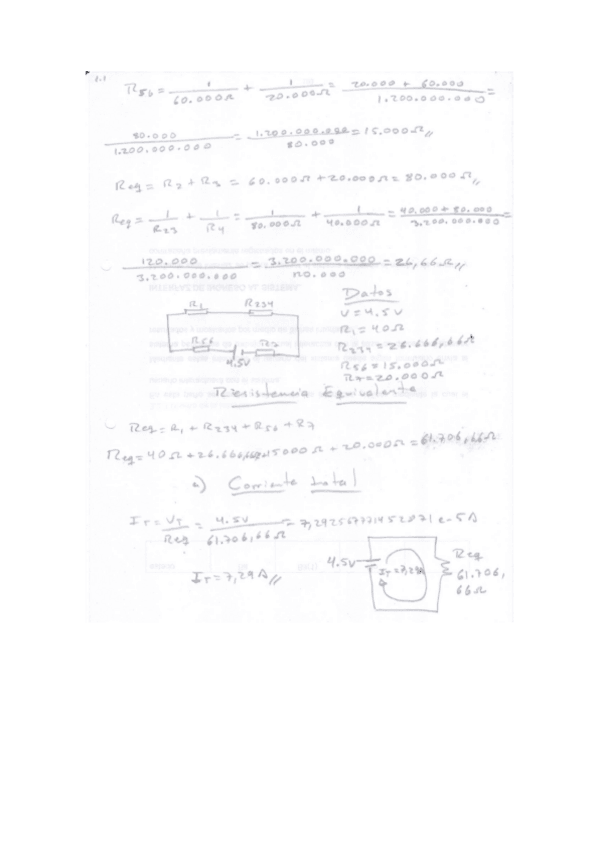 1.1
R56 = 1/60.000Ω + 1/20.000Ω = 20.000 + 60.000/1.200.000.000 =
80.000/1.200.000.000 = 1.200.000.000/80.000 = 15.000Ω //
Req = R2 + R3 = 60.000Ω + 20.000Ω = 80.000Ω //
Req = 1/R23 + 1/R4 = 1/80.000Ω + 1/40.000Ω = 40.000 + 80.000/3.200.000.000 =
120.000/3.200.000.000 = 3.200.000.000/120.000 = 26,66Ω //
Datos
R1 R234
V = 4.5V
R1 = 40Ω
R234 = 26.666,66Ω
R56 R7
4.5V
R56 = 15.000Ω
R7 = 20.000Ω
Resistencia Equivalente
Req = R1 + R234 + R56 + R7
Req = 40Ω + 26.666,66+15000Ω + 20.000Ω = 61.706,66Ω
a) Corriente total
IT = VT/Req = 4.5V/61.706,66Ω = 7,292567771452871 e-5A
IT = 7,29A //
4.5V
IT=7,29A
Req
61.706,
66Ω